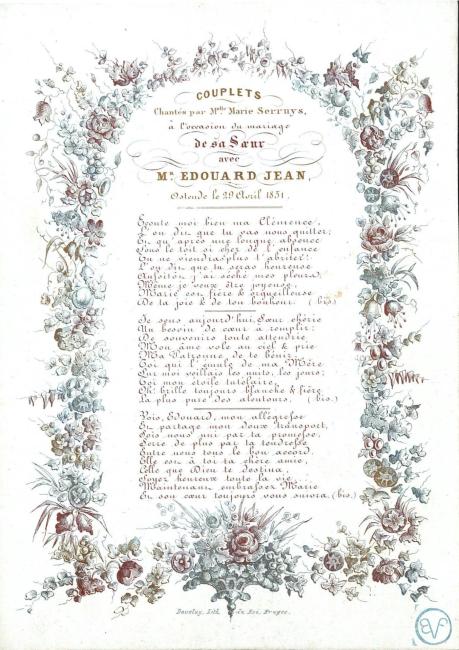 COUPLETS
Chantés par M.elle Marie Serruys,
à l'occasion du mariage
de sa Sœur
avec
Mr. EDOUARD JEAN,
Ostende le 29 Avril 1851.
Écoute moi bien ma Clémence,
L'on dit que tu vas nous quitter;
Et qu'après une longue absence
Sous le toit si cher de l'enfance
Tu ne viendras plus t'abriter.
L'on dit que tu seras heureuse
Aussitôt j'ai séché mes pleurs,
Même je veux être joyeuse,
Marie est fière & orgueilleuse
De ta joie & de ton bonheur. (bis)
Je sens aujourd'hui, Sœur chérie
Un besoin de cœur à remplir:
De souvenirs toute attendrie
Mon âme vole au ciel & prie
Ma Patronne de te bénir.
Toi qui l'égale de ma Mère
Sur moi veillais les nuits, les jours;
Toi mon étoile tutélaire
Oh! brille toujours blanche & fière
La plus pure des alentours. (bis.)
Vois, Edouard, mon allégresse
Et partage mon doux transport,
Sois nous uni par ta promesse,
Serre de plus par ta tendresse
Entre nous tous le bon accord.
Elle est à toi ta chère amie,
Celle que Dieu te destina,
Soyez heureux toute la vie
Maintenant embrassez Marie
Et son cœur toujours vous suivra. (bis.)
Daveluy, Lith. du Roi, Bruges.